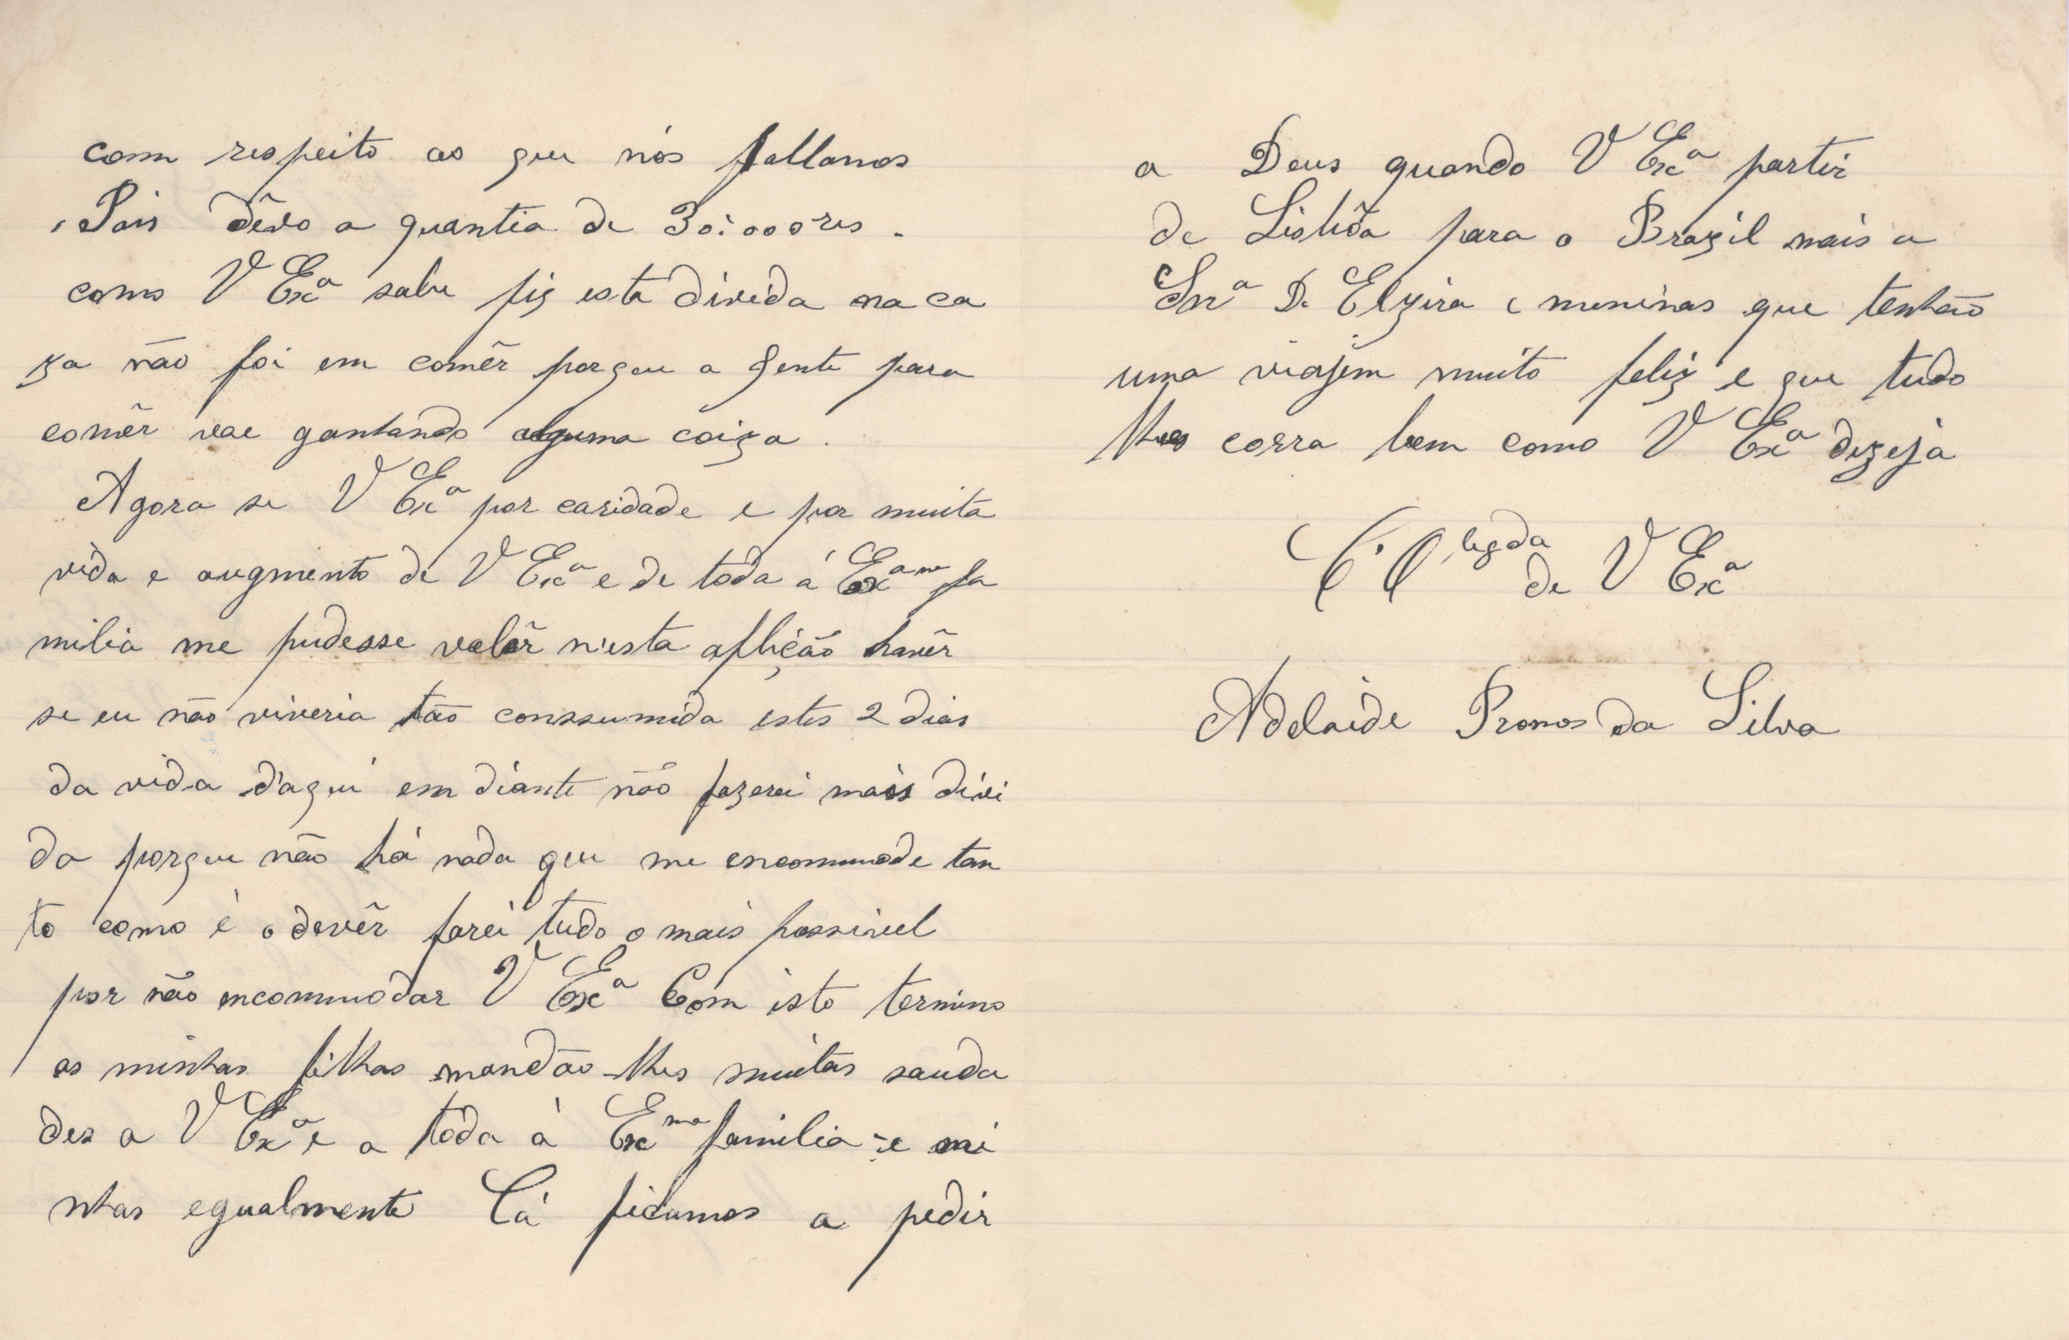 com respeito ao que nós fallamos
Pois dêvo a quantia de 30:000 res.
como V Exª sabe fiz esta divida na ca
za não foi em comêr porque a gente para
comêr vae ganhando alguma coiza.
Agora se V Exª por caridade e por muita
vida e augmento de V Exª e de toda á Exᵃᵐᵃ fa
milia me pudesse valêr n'esta aflição havêr
se eu não viveria tão conssumida estes 2 dias
da vida d'aqui em diante não fazerei mais divi
da porque não há nada que me encommode tan
to como é o devêr farei tudo o mais possivel
por não encommodar V Exª Com isto termino
as minhas filhas mandão-lhes muitas sauda
des a V Exª e a toda á Exᵐᵃ familia e mi
nhas egualmente Cá ficamos a pedir
a Deus quando V Exª partir
de Lisbôa para o Brazil mais a
Snrª D. Elzira e meninas que tenhão
uma viajem muito feliz e que tudo
lhes corra bem como V Exª dezeja
de V Exª
Adelaide da Silva